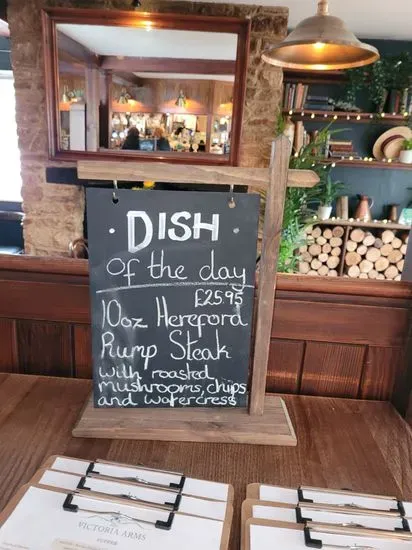 DISH
of the day
£25.95
10oz Hereford
Rump Steak
with roasted
mushrooms, chips
and watercress
VICTORIA ARMS